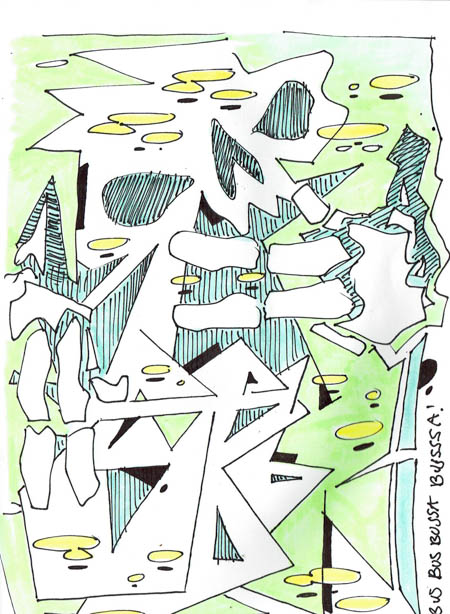 BUS BUS BUSSA BUSSSA!